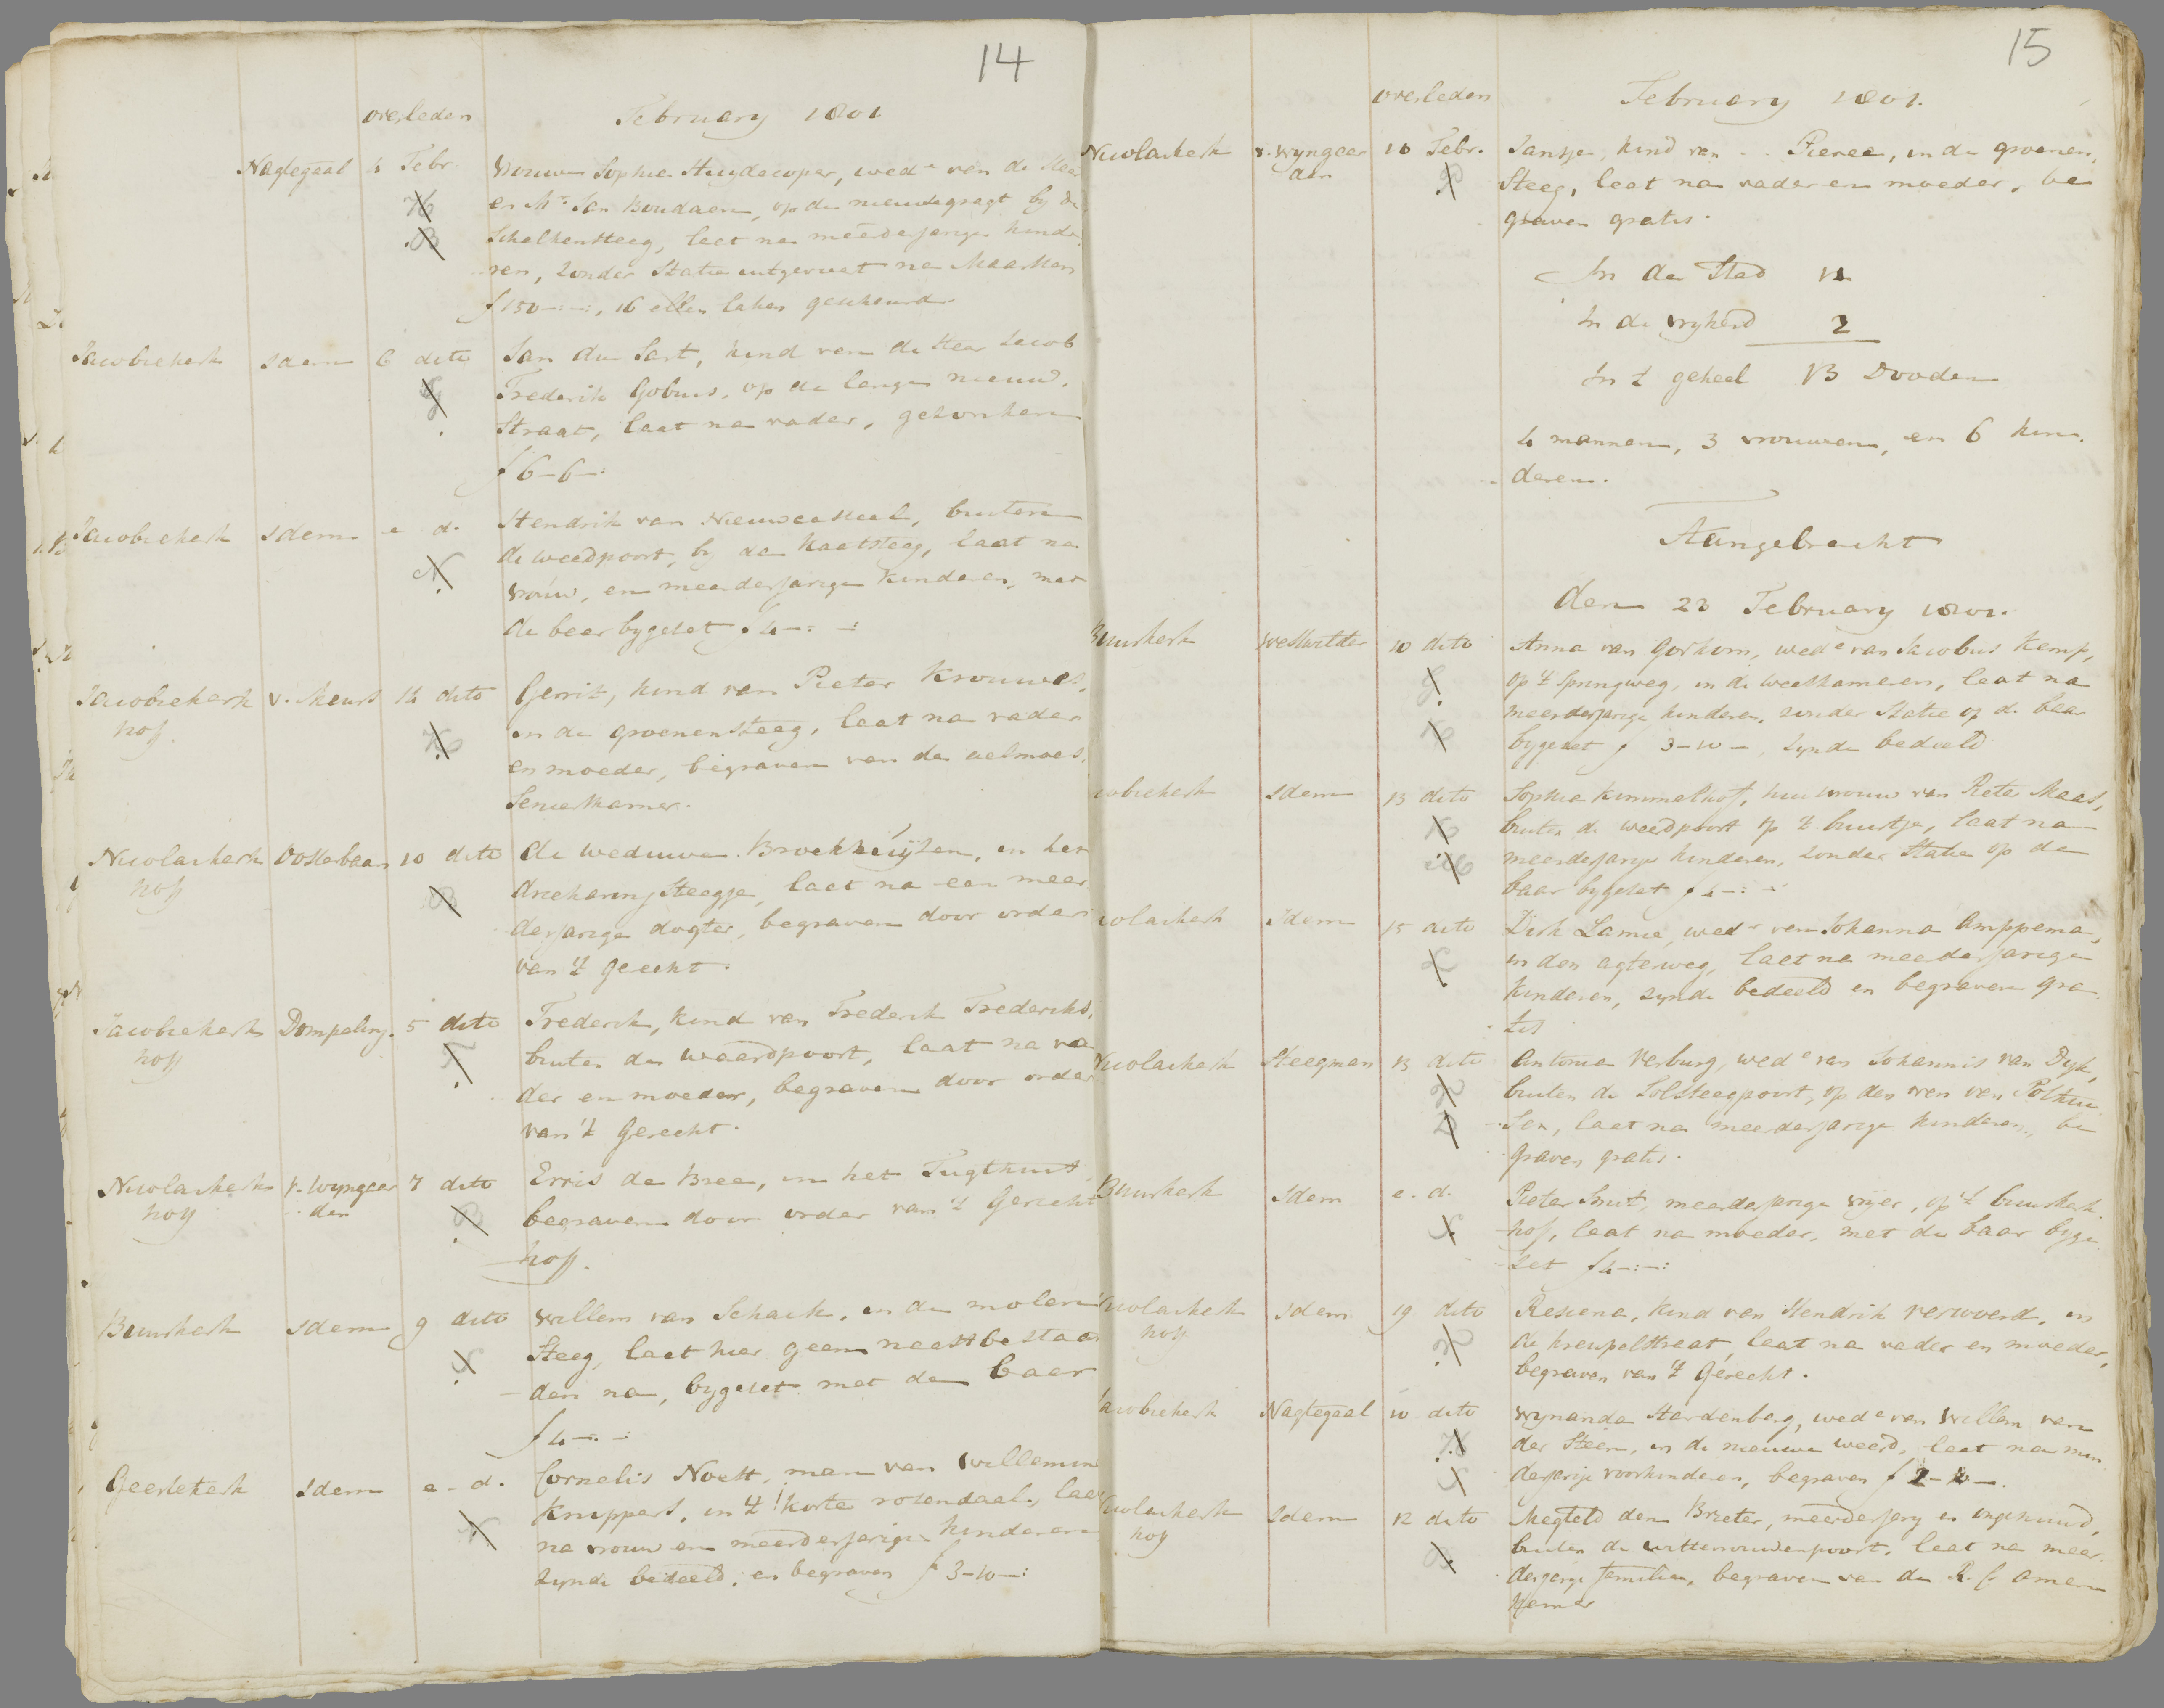 14
overleden February 1801
Nagtegaal 4 Febr. Vrouwe Sophia Huydecoper, wed<sup>e</sup> van de Heer
en M<sup>r</sup>. Jan Boudaen, op de nieuwegragt by de
Schalkensteeg, laat na meerderjarige kinde
ren, zonder Statie uitgevoert na Maarssen
f 150-:-:, 16 ellen laken gescheurd
Jacobiekerk Idem 6 dito Jan du Sart, kind van de Heer Jacob
Frederik Gobius, op de lange nieuw.
Straat, laat na vader, gezonken
f 6-6-:
Jacobiekerk Idem e. d. Hendrik van Nieuwcasteel, buiten
de weedpoort, by de Kaatsteeg, laat na
vrouw, en meerderjarige kinderen, met
de beer bygeset f 4-:-:
Jacobiekerk v. Meurs 14 dito Gerrit, kind van Pieter Krouwes,
hof. in de groenensteeg, laat na vader
en moeder, begraven van de aelmoes.
senierskamer.
Nicolaikerk Oosterbaan 10 dito de weduwe Broekhuijzen, in het
hoff drieharingsteegje, laat na een meer
derjarige dogter, begraven door order
van 't gerecht.
Jacobiekerk Dompeling. 5 dito Frederik, kind van Frederik Frederiks,
hoff buiten de waardpoort, laat na va
der en moeder, begraven door order
van 't Gerecht.
Nicolaikerk v. Wyngaar 7 dito Erris de Bree, in het Tugthuis
hoff den begraven door order van 't Gerecht
hoff.
Buurkerk Idem 9 dito Willem van Schaik, in de molen
Steeg, laat hier geen naastbestaan
den na, bygeset met de baar
f 4-:-:
Geertekerk Idem e. d. Cornelis Noest, man van Willemina
Knippers, in 't korte rosendaal, laat
na vrouw en meerderjarige kinderen
zynde bedeeld, en begraven f 3-10-:
15
overleden February 1801.
Nicolaikerk v. Wyngaar 10 Febr. Jansje, kind van .. Pieree, in de groenen
den Steeg, laat na vader en moeder, be
graven gratis.
In de Stad 11
In de vryheid 2
In 't geheel 13 Dooden
4 mannen, 3 vrouwen, en 6 kin.
deren.
Aangebracht
den 23 February 1801.
Buurkerk Westwitte 10 dito Anna van Gorkum, wed<sup>e</sup> van Jacobus Kemp,
op 't Springweg, in de weeskameren, laat na
meerderjarige kinderen, zonder Statie op de baar
bygeset f 3-10-, zynde bedeeld
Jacobiekerk Idem 13 dito Sophia Kimmelhof, huisvrouw van Peter Maas,
buiten de weedpoort op 't buurtje, laat na
meerderjarige kinderen, zonder Statie op de
baar bygeset f 4-:-:
Nicolaikerk Idem 15 dito Dirk Lamie, wed<sup>r</sup> van Johanna Amppema,
in den agterweg, laat na meerderjarige
kinderen, zynde bedeeld en begraven gra
tis
Nicolaikerk Steegman 13 dito Antonia Verburg, wed<sup>e</sup> van Johannis van Dyk,
buiten de Tolsteegpoort, op den ven van Polthui
sen, laat na meerderjarige kinderen, be
graven gratis.
Buurkerk Idem e. d. Pieter Smit, meerderjarige vryer, op 't buurkerk
hof, laat na moeder, met de baar byge
zet f 4-:-:
Nicolaikerk Idem 19 dito Resiena, kind van Hendrik Verwoerd, in
hoff de kreupelstraat, laat na vader en moeder,
begraven van 't gerecht.
Jacobiekerk Nagtegaal 10 dito Wynanda Hardenberg, wed<sup>e</sup> van Willem van
der Steen, in de nieuwe weerd, laat na min
derjarige voorkinderen, begraven f 2-10-.
Nicolaikerk Idem 12 dito Megteld den Brieter, meerderjarig en ongehuwd,
hoff buiten de wittevrouwenpoort, laat na meer.
derjarige familie, begraven van de R. C. Armen
kamer